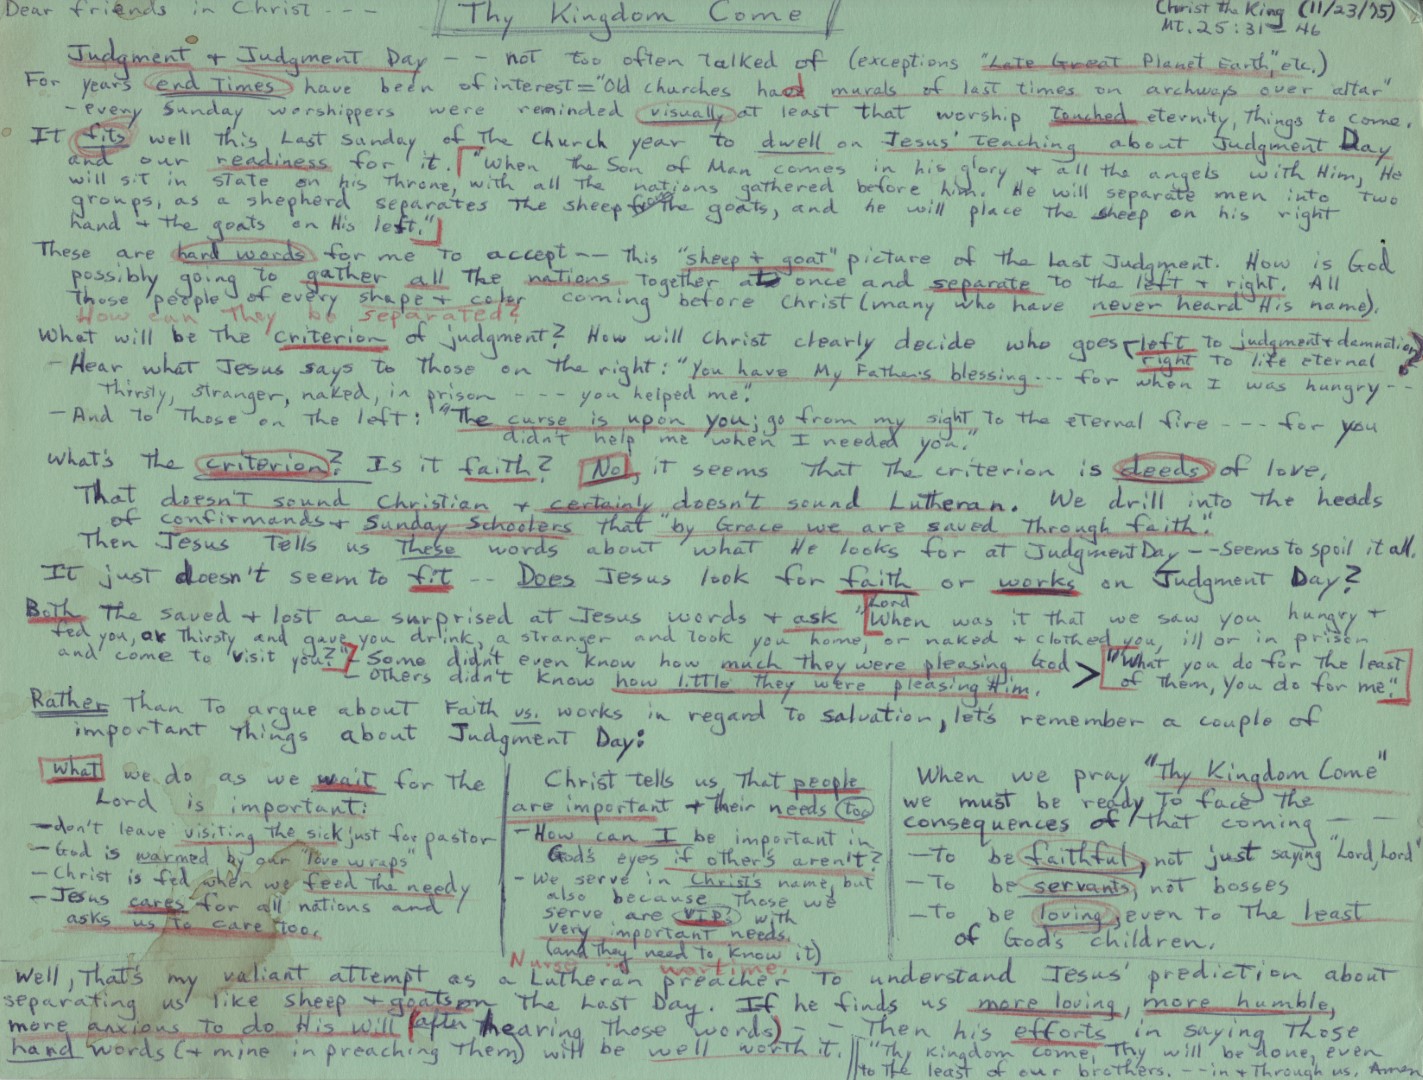 Dear friends in Christ - - -
Thy Kingdom Come
Christ the King (11/23/75)
Mt. 25:31-46
Judgment + Judgment Day -- not too often talked of (exceptions "Late Great Planet Earth," etc.)
For years end times have been of interest = "Old churches had murals of last times on archways over altar"
- every Sunday worshippers were reminded visually at least that worship touched eternity, things to come.
It fits well this Last Sunday of the Church year to dwell on Jesus' teaching about Judgment Day
and our readiness for it. "When the Son of Man comes in his glory + all the angels with Him, He
will sit in state on his throne, with all the nations gathered before him. He will separate men into two
groups, as a shepherd separates the sheep from the goats, and he will place the sheep on his right
hand + the goats on His left."
These are hard words for me to accept -- this "sheep + goat" picture of the Last Judgment. How is God
possibly going to gather all the nations together at once and separate to the left + right. All
those people of every shape + color coming before Christ (many who have never heard His name).
How can they be separated?
What will be the criterion of judgment? How will Christ clearly decide who goes (left to judgment + damnation)
right to life eternal?
- Hear what Jesus says to those on the right: "You have My Father's blessing --- for when I was hungry --
thirsty, stranger, naked, in prison --- you helped me."
- And to those on the left: "The curse is upon you; go from my sight to the eternal fire --- for you
didn't help me when I needed you."
What's the criterion? Is it faith? No, it seems that the criterion is deeds of love.
That doesn't sound Christian + certainly doesn't sound Lutheran. We drill into the heads
of confirmands + Sunday Schoolers that "by Grace we are saved through faith".
Then Jesus tells us these words about what He looks for at Judgment Day -- seems to spoil it all.
It just doesn't seem to fit -- Does Jesus look for faith or works on Judgment Day?
Both the saved + lost are surprised at Jesus words + ask "Lord When was it that we saw you hungry +
fed you, or thirsty and gave you drink, a stranger and took you home, or naked + clothed you, ill or in prison
and come to visit you?" - Some didn't even know how much they were pleasing God > "What you do for the least
- Others didn't know how little they were pleasing Him. of them, you do for me."
Rather than to argue about Faith vs. works in regard to salvation, let's remember a couple of
important things about Judgment Day:
What we do as we wait for the
Lord is important:
- don't leave visiting the sick just for pastor
- God is warmed by our "love wraps"
- Christ is fed when we feed the needy
- Jesus cares for all nations and
asks us to care too.
Christ tells us that people
are important + their needs too
- How can I be important in
God's eyes if other's aren't?
- We serve in Christ's name, but
also because those we
serve are VIP? with
very important needs.
(and they need to know it)
Nurse in wartime.
When we pray "Thy Kingdom Come"
we must be ready to face the
consequences of that coming - -
- To be faithful, not just saying "Lord, Lord"
- To be servants, not bosses
- To be loving, even to the least
of God's children.
Well, that's my valiant attempt as a Lutheran preacher to understand Jesus' prediction about
separating us like sheep + goats on the Last Day. If he finds us more loving, more humble,
more anxious to do His will (after hearing those words) - - Then his efforts in saying those
hard words (+ mine in preaching them) will be well worth it. "Thy Kingdom come, Thy will be done, even
to the least of our brothers. -- in + through us. Amen